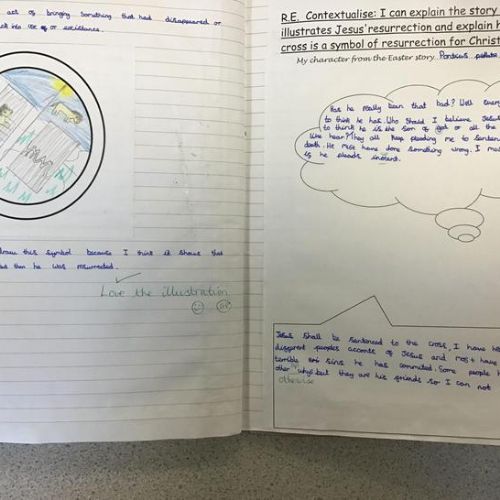 act of bringing something that had disappeared or
back into use or or existance.
draw this symbol because I think it shows that
then he was resurrected.
Love the illustration
R.E. Contextualise: I can explain the story
illustrates Jesus' resurrection and explain h
cross is a symbol of resurrection for Christ
My character from the Easter story. Pontious
Has he really been that bad? Well every
to think he has. Who should I believe Jesus
to think he is the son of god or all the
like hear? They all keep pleading me to senten
death. He must have done something wrong. I
is he pleads inocent.
Jesus shall be santenced to the cross, I have he
different peoples acconts of Jesus and most have
terrible sins he has commited. Some people
other why but they are his friends so I can not
otherwise